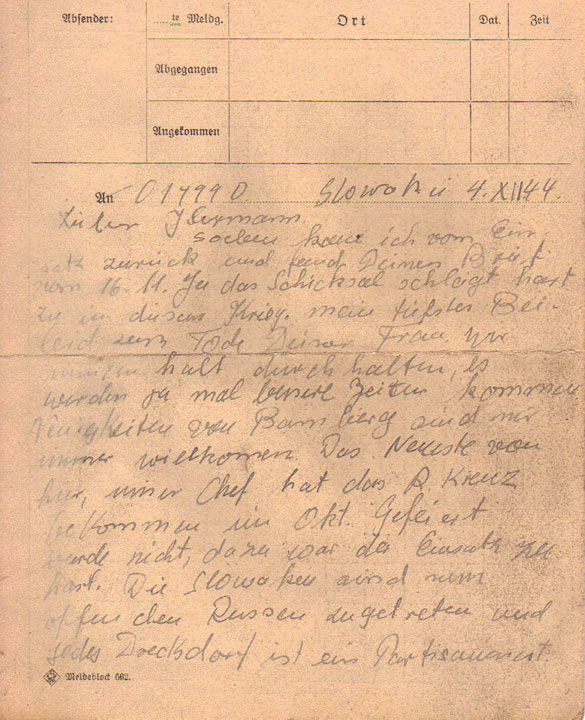 Absender:
te Meldg. Ort Dat. Zeit
Abgegangen
Angekommen
An 01799 D Slowakei 4.XII44.
Lieber Hermann.
soeben kam ich vom Ein-
satz zurück und fand Deinen Brief
vom 16.11. Ja das Schicksal schlägt hart
zu in diesem Krieg, mein tiefstes Bei-
leid zum Tode Deiner Frau, wir
müssen halt durchhalten, es
werden ja mal bessere Zeiten kommen
Neuigkeiten von Bamberg sind mir
immer willkommen. Das Neuste von
hier, unser Chef hat das R. Kreuz
bekommen im Okt. Gefeiert
wurde nicht, dazu war der Einsatz zu
hart. Die Slowaken sind nun
offen den Russen zugetreten und
jedes Drecksdorf ist ein Partisanennest.
Meldeblock 662.